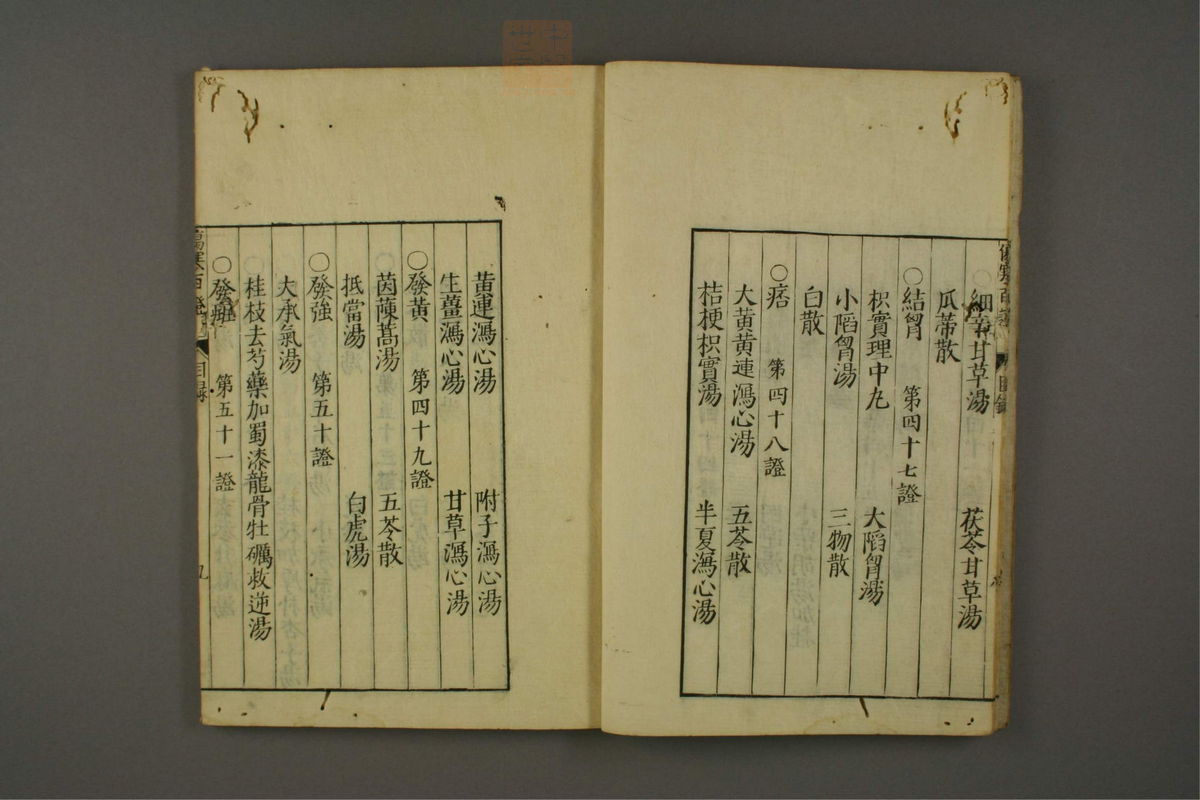 細辛甘草湯　茯苓甘草湯
瓜蔕散
〇結胷　第四十七證
枳實理中丸　大陷胷湯
小陷胷湯　三物散
白散
〇痞　第四十八證
大黄黄連瀉心湯　五苓散
桔梗枳實湯　半夏瀉心湯
黄連瀉心湯　附子瀉心湯
生薑瀉心湯　甘草瀉心湯
〇發黃　第四十九證
茵蔯蒿湯　五苓散
抵當湯　白虎湯
〇發強　第五十證
大承氣湯
桂枝去芍藥加蜀漆龍骨牡礪救逆湯
〇發　第五十一證
傷寒百證　目録　九